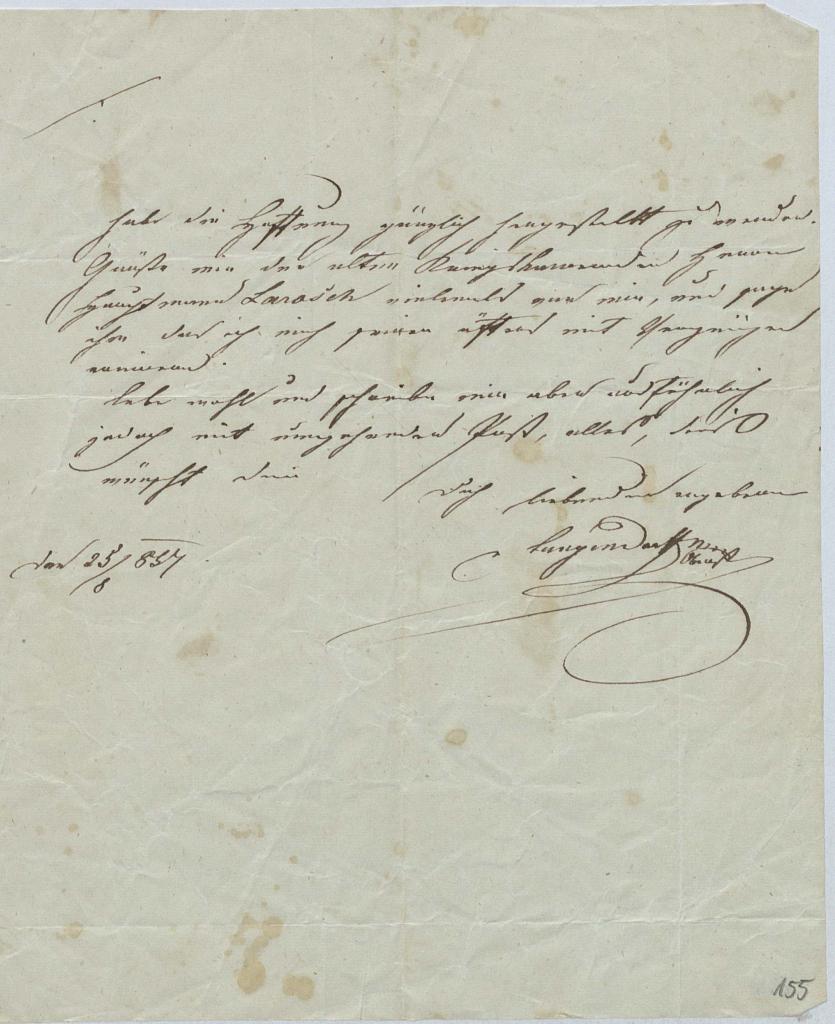 habe die Hoffnung gänzlich hergestellt zu werden.
Grüße mir den alten Kriegskameraden Herrn
Hauptmann Larosch vielmals von mir, und sage
ihm das ich mich seiner öfters mit Vergnügen
erinnere.
lebe wohl und schreibe mir aber ausführlich
jedoch mit umgehender Post, alles, dies
wünscht dein
Dich liebender ergebener
Langendorff
Oberst
den 25/8 857
155